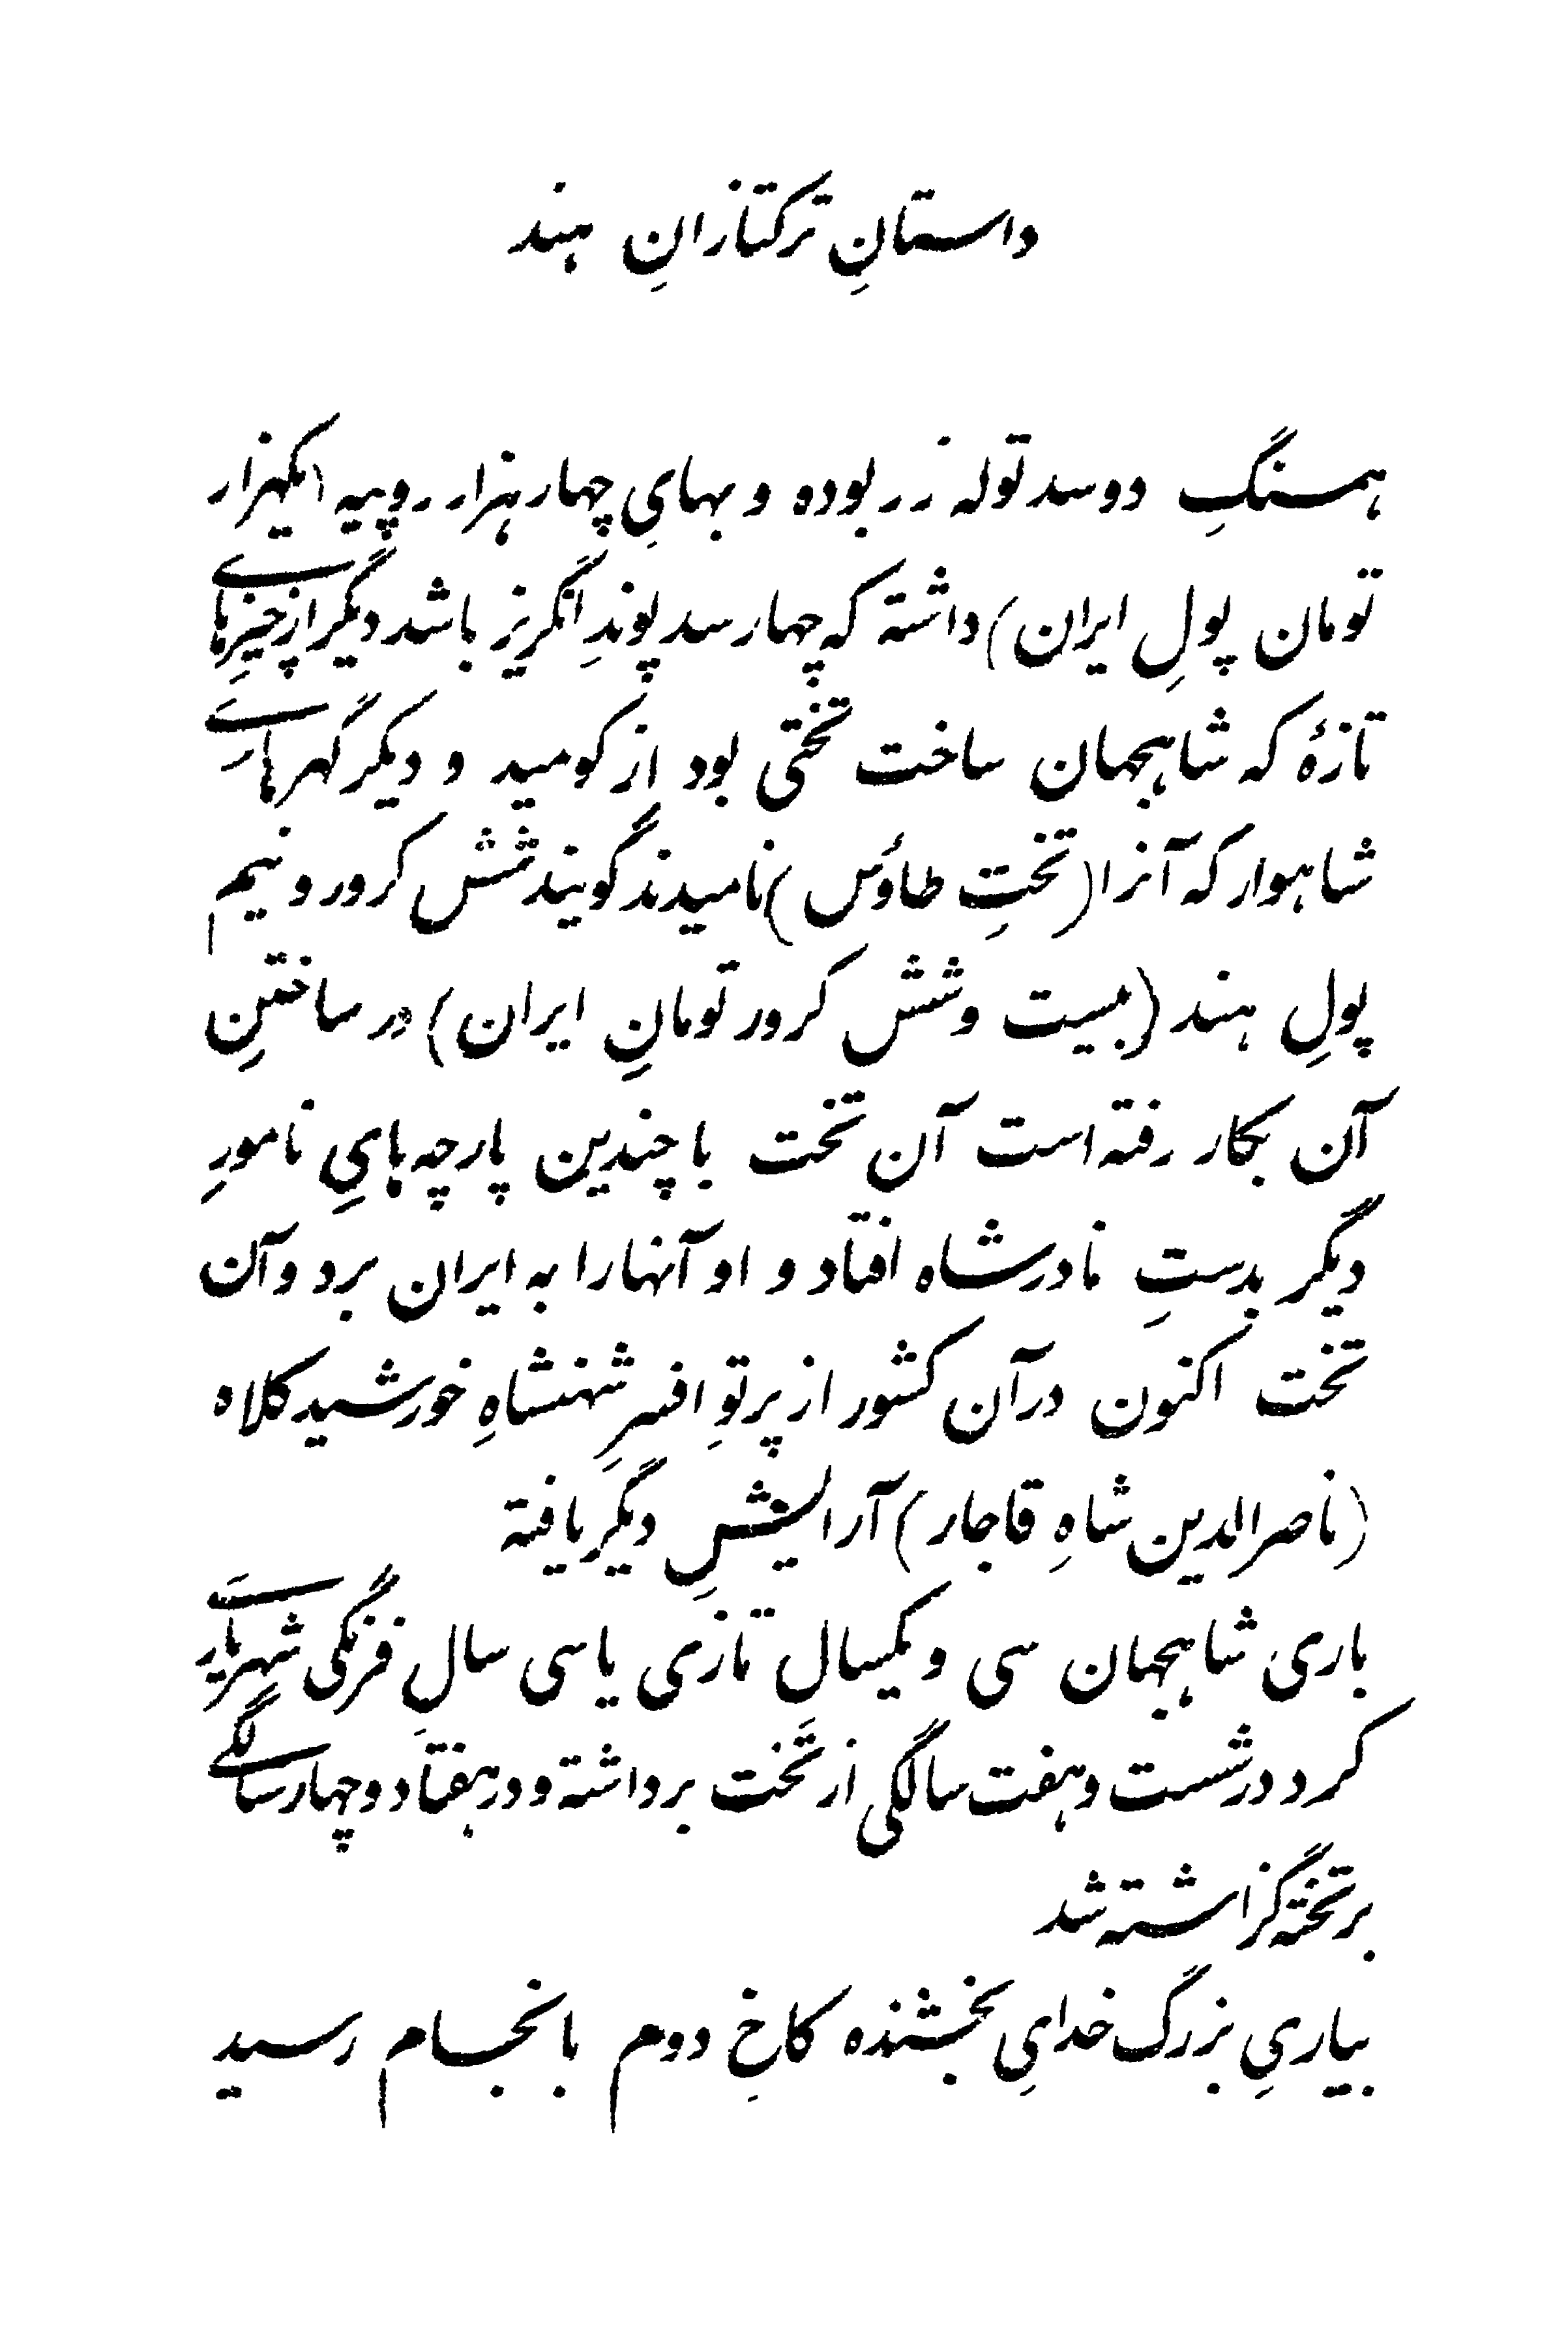 داستانِ ترکتازانِ هند
همسنگِ دوسد توله زر بوده و بهایِ چهار هزار روپیه (یکهزار
تومان پولِ ایران) داشته که چهار سد پوندِ انگریز باشد دیگر از چیزِهای
تازهٔ که شاهجهان ساخت تختی بود از کومید و دیگر گهرهایِ
شاهوار که آنرا (تختِ طاؤس) نامیدند گویند شش کرور و نیم
پولِ هند (بیست و شش کرور تومانِ ایران) در ساختنِ
آن بکار رفته است آن تخت با چندین پارچه هایِ نامورِ
دیگر بدستِ نادرشاه افتاد و او آنهارا به ایران برد و آن
تخت اکنون در آن کشور از پرتوِ افسرِ شهنشاهِ خورشید کلاه
(ناصرالدین شاهِ قاجار) آرایشِ دیگر یافته
باری شاهجهان سی و یکسالِ تازی یا سی سالِ فرنگی شهریاری
کرد در شست و هفت سالگی از تَخت برداشته و در هفتاد و چهار سالگی
بر تخته گزاشته شد
بیاریِ بزرگ خدایِ بخشنده کاخِ دوم بانجام رسید